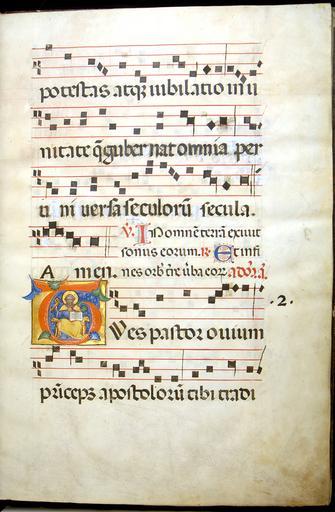 potestas atq; iubilatio in u
nitate q̄ guber nat omnia per
u ni uersa seculorū secula.
℣. IN omnē terrā exiuit
sonus eorum. ℟. Et in fi
A men. nes orb̄ tr̄e ūba eor̄
-2-
T U es pastor ouium
prīceps apostolorū tibi tradi